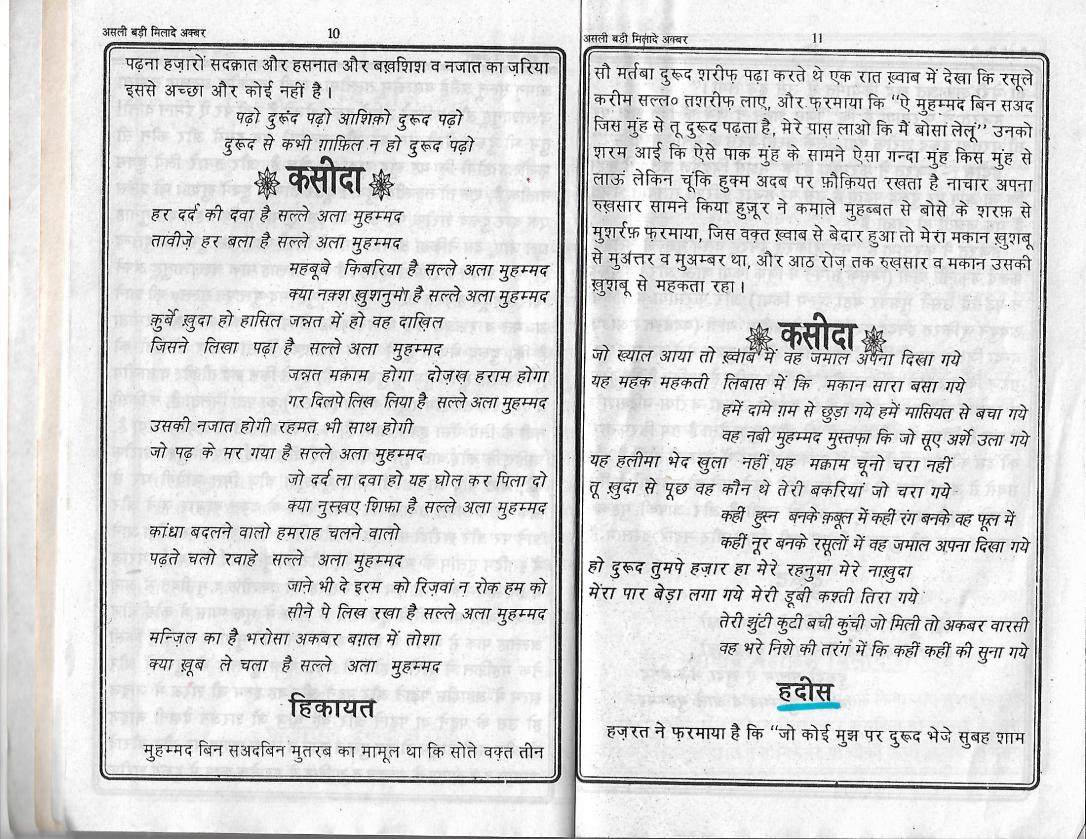 असली बड़ी मिलादे अक्बर
10
पढ़ना हज़ारों सदक़ात और हसनात और बख़शिश व नजात का ज़रिया
इससे अच्छा और कोई नहीं है।
पढ़ो दुरूद पढ़ो आशिक़ो दुरूद पढ़ो
दुरूद से कभी ग़ाफ़िल न हो दुरूद पढ़ो
कसीदा
हर दर्द की दवा है सल्ले अला मुहम्मद
तावीज़े हर बला है सल्ले अला मुहम्मद
महबूबे किबरिया है सल्ले अला मुहम्मद
क्या नक़्श ख़ुशनुमा है सल्ले अला मुहम्मद
क़ुर्बे ख़ुदा हो हासिल जन्नत में हो वह दाख़िल
जिसने लिखा पढ़ा है सल्ले अला मुहम्मद
जन्नत मक़ाम होगा दोज़ख़ हराम होगा
गर दिलपे लिख लिया है सल्ले अला मुहम्मद
उसकी नजात होगी रहमत भी साथ होगी
जो पढ़ के मर गया है सल्ले अला मुहम्मद
जो दर्द ला दवा हो यह घोल कर पिला दो
क्या नुस्ख़ए शिफ़ा है सल्ले अला मुहम्मद
कांधा बदलने वालो हमराह चलने वालो
पढ़ते चलो रवाहे सल्ले अला मुहम्मद
जाने भी दे इरम को रिज़वां न रोक हम को
सीने पे लिख रखा है सल्ले अला मुहम्मद
मन्ज़िल का है भरोसा अकबर बग़ल में तोशा
क्या ख़ूब ले चला है सल्ले अला मुहम्मद
हिकायत
मुहम्मद बिन सअदबिन मुतरब का मामूल था कि सोते वक़्त तीन
असली बड़ी मिलादे अक्बर
11
सौ मर्तबा दुरूद शरीफ़ पढ़ा करते थे एक रात ख़्वाब में देखा कि रसूले
करीम सल्ल० तशरीफ़ लाए, और फ़रमाया कि “ऐ मुहम्मद बिन सअद
जिस मुंह से तू दुरूद पढ़ता है, मेरे पास लाओ कि मैं बोसा लेलूं” उनको
शरम आई कि ऐसे पाक मुंह के सामने ऐसा गन्दा मुंह किस मुंह से
लाऊं लेकिन चूंकि हुक्म अदब पर फ़ौक़ियत रखता है नाचार अपना
रुख़सार सामने किया हुज़ूर ने कमाले मुहब्बत से बोसे के शरफ़ से
मुशर्रफ़ फ़रमाया, जिस वक़्त ख़्वाब से बेदार हुआ तो मेरा मकान ख़ुशबू
से मुअत्तर व मुअम्बर था, और आठ रोज़ तक रुख़सार व मकान उसकी
ख़ुशबू से महकता रहा।
कसीदा
जो ख्याल आया तो ख़्वाब में वह जमाल अपना दिखा गये
यह महक महकती लिबास में कि मकान सारा बसा गये
हमें दामे ग़म से छुड़ा गये हमें मासियत से बचा गये
वह नबी मुहम्मद मुस्तफ़ा कि जो सूए अर्शे उला गये
यह हलीमा भेद खुला नहीं यह मक़ाम चूनो चरा नहीं
तू ख़ुदा से पूछ वह कौन थे तेरी बकरिया जो चरा गये
कहीं हुस्न बनके क़बूल में कहीं रंग बनके वह फूल में
कहीं नूर बनके रसूलों में वह जमाल अपना दिखा गये
हो दुरूद तुमपे हज़ार हा मेरे रहनुमा मेरे नाख़ुदा
मेरा पार बेड़ा लगा गये मेरी डूबी कश्ती तिरा गये
तेरी झुंटी कुटी बची कुंची जो मिली तो अकबर वारसी
वह भरे निशे की तरंग में कि कहीं कहीं की सुना गये
हदीस
हज़रत ने फ़रमाया है कि “जो कोई मुझ पर दुरूद भेजे सुबह शाम